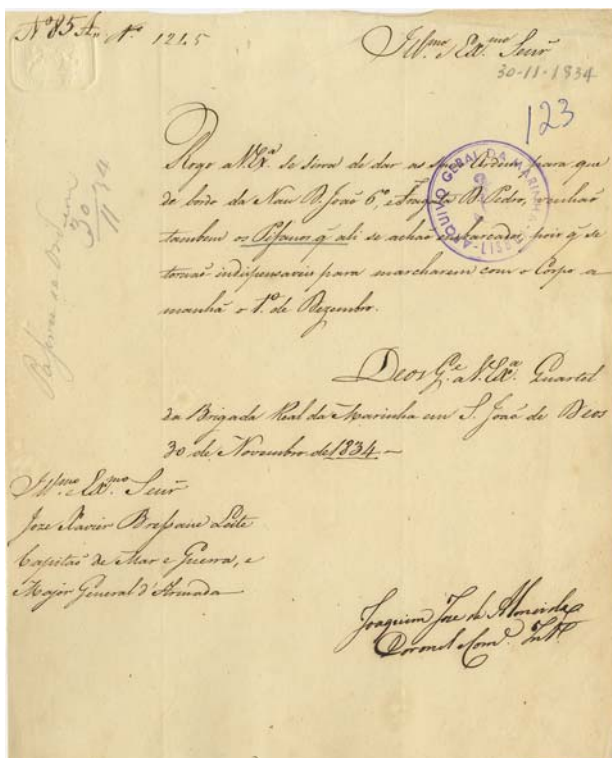 Nº 85 Aº Nº 1215
Illmo e Exmo Senr
30-11-1834
123
Rogo a V.Exª. se sirva de dar as suas Ordens para que
de bordo da Nau D. João 6º, e Fragata D. Pedro, venhão
tambem os Pifanos q ali se achão embarcados, pois q se
tornão indispensaveis para marcharem com o Corpo a
manhã o 1º. de Dezembro.
ARQUIVO GERAL DA MARINHA
LISBOA
30
11 34
Deos Ge. a V.Exª. Quartel
da Brigada Real da Marinha em S. João de Deos
30 de Novembro de 1834 =
Illmo e Exmo Senr
Joze Xavier Bressane Leite
Capitão de Mar e Guerra, e
Major General d'Armada
Joaquim Joze de Almeida
Coronel Comde. Intº.